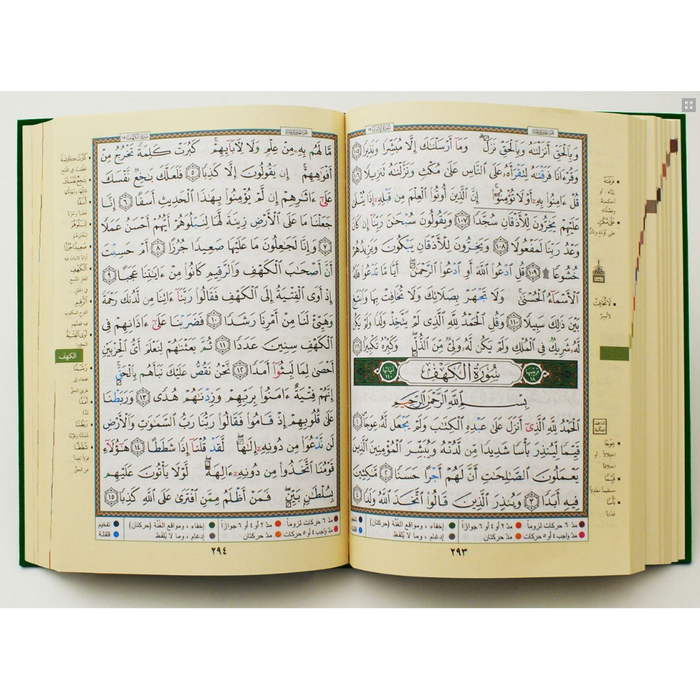 وَبِالْحَقِّ أَنزَلْنَٰهُ وَبِالْحَقِّ نَزَلَ ۗ وَمَا أَرْسَلْنَٰكَ إِلَّا مُبَشِّرًا وَنَذِيرًا ١٠٥
وَقُرْءَانًا فَرَقْنَٰهُ لِتَقْرَأَهُ عَلَى النَّاسِ عَلَىٰ مُكْثٍ وَنَزَّلْنَٰهُ تَنزِيلًا ١٠٦
قُلْ ءَامِنُوا بِهِ أَوْ لَا تُؤْمِنُوا ۚ إِنَّ الَّذِينَ أُوتُوا الْعِلْمَ مِن قَبْلِهِ إِذَا يُتْلَىٰ
عَلَيْهِمْ يَخِرُّونَ لِلْأَذْقَانِ سُجَّدًا ١٠٧ وَيَقُولُونَ سُبْحَٰنَ رَبِّنَا إِن كَانَ
وَعْدُ رَبِّنَا لَمَفْعُولًا ١٠٨ وَيَخِرُّونَ لِلْأَذْقَانِ يَبْكُونَ وَيَزِيدُهُمْ
خُشُوعًا ۩ ١٠٩ قُلِ ادْعُوا اللَّهَ أَوِ ادْعُوا الرَّحْمَٰنَ ۖ أَيًّا مَّا تَدْعُوا فَلَهُ
الْأَسْمَاءُ الْحُسْنَىٰ ۚ وَلَا تَجْهَرْ بِصَلَاتِكَ وَلَا تُخَافِتْ بِهَا وَابْتَغِ
بَيْنَ ذَٰلِكَ سَبِيلًا ١١٠ وَقُلِ الْحَمْدُ لِلَّهِ الَّذِي لَمْ يَتَّخِذْ وَلَدًا وَلَمْ يَكُن
لَّهُ شَرِيكٌ فِي الْمُلْكِ وَلَمْ يَكُن لَّهُ وَلِيٌّ مِّنَ الذُّلِّ ۖ وَكَبِّرْهُ تَكْبِيرًا ١١١
سُورَةُ الْكَهْفِ
بِسْمِ اللَّهِ الرَّحْمَٰنِ الرَّحِيمِ
الْحَمْدُ لِلَّهِ الَّذِي أَنزَلَ عَلَىٰ عَبْدِهِ الْكِتَٰبَ وَلَمْ يَجْعَل لَّهُ عِوَجَا ۜ ١
قَيِّمًا لِّيُنذِرَ بَأْسًا شَدِيدًا مِّن لَّدُنْهُ وَيُبَشِّرَ الْمُؤْمِنِينَ الَّذِينَ
يَعْمَلُونَ الصَّٰلِحَٰتِ أَنَّ لَهُمْ أَجْرًا حَسَنًا ٢ مَّٰكِثِينَ
فِيهِ أَبَدًا ٣ وَيُنذِرَ الَّذِينَ قَالُوا اتَّخَذَ اللَّهُ وَلَدًا ٤
مدّ ٦ حركات لزوماً مدّ ٢ أو ٤ أو ٦ جوازاً إخفاء ، ومواقع الغُنَّة (حركتان) تفخيم
مدّ واجب ٤ أو ٥ حركات مدّ حركتان إدغام ، وما لا يُلفَظ قلقلة
٢٩٣
مَّا لَهُم بِهِ مِنْ عِلْمٍ وَلَا لِآبَائِهِمْ ۚ كَبُرَتْ كَلِمَةً تَخْرُجُ مِنْ
أَفْوَٰهِهِمْ ۚ إِن يَقُولُونَ إِلَّا كَذِبًا ٥ فَلَعَلَّكَ بَٰخِعٌ نَّفْسَكَ
عَلَىٰ ءَاثَٰرِهِمْ إِن لَّمْ يُؤْمِنُوا بِهَٰذَا الْحَدِيثِ أَسَفًا ٦ إِنَّا
جَعَلْنَا مَا عَلَى الْأَرْضِ زِينَةً لَّهَا لِنَبْلُوَهُمْ أَيُّهُمْ أَحْسَنُ عَمَلًا
٧ وَإِنَّا لَجَٰعِلُونَ مَا عَلَيْهَا صَعِيدًا جُرُزًا ٨ أَمْ حَسِبْتَ
أَنَّ أَصْحَٰبَ الْكَهْفِ وَالرَّقِيمِ كَانُوا مِنْ ءَايَٰتِنَا عَجَبًا ٩
إِذْ أَوَى الْفِتْيَةُ إِلَى الْكَهْفِ فَقَالُوا رَبَّنَا ءَاتِنَا مِن لَّدُنكَ رَحْمَةً
وَهَيِّئْ لَنَا مِنْ أَمْرِنَا رَشَدًا ١٠ فَضَرَبْنَا عَلَىٰ ءَاذَانِهِمْ فِي
الْكَهْفِ سِنِينَ عَدَدًا ١١ ثُمَّ بَعَثْنَٰهُمْ لِنَعْلَمَ أَيُّ الْحِزْبَيْنِ
أَحْصَىٰ لِمَا لَبِثُوا أَمَدًا ١٢ نَّحْنُ نَقُصُّ عَلَيْكَ نَبَأَهُم بِالْحَقِّ ۚ
إِنَّهُمْ فِتْيَةٌ ءَامَنُوا بِرَبِّهِمْ وَزِدْنَٰهُمْ هُدًى ١٣ وَرَبَطْنَا
عَلَىٰ قُلُوبِهِمْ إِذْ قَامُوا فَقَالُوا رَبُّنَا رَبُّ السَّمَٰوَٰتِ وَالْأَرْضِ
لَن نَّدْعُوَا مِن دُونِهِ إِلَٰهًا ۖ لَّقَدْ قُلْنَا إِذًا شَطَطًا ١٤ هَٰؤُلَاءِ
قَوْمُنَا اتَّخَذُوا مِن دُونِهِ ءَالِهَةً ۖ لَّوْلَا يَأْتُونَ عَلَيْهِم
بِسُلْطَٰنٍ بَيِّنٍ ۖ فَمَنْ أَظْلَمُ مِمَّنِ افْتَرَىٰ عَلَى اللَّهِ كَذِبًا ١٥
الكهف
مدّ ٦ حركات لزوماً مدّ ٢ أو ٤ أو ٦ جوازاً إخفاء ، ومواقع الغُنَّة (حركتان) تفخيم
مدّ واجب ٤ أو ٥ حركات مدّ حركتان إدغام ، وما لا يُلفَظ قلقلة
٢٩٤